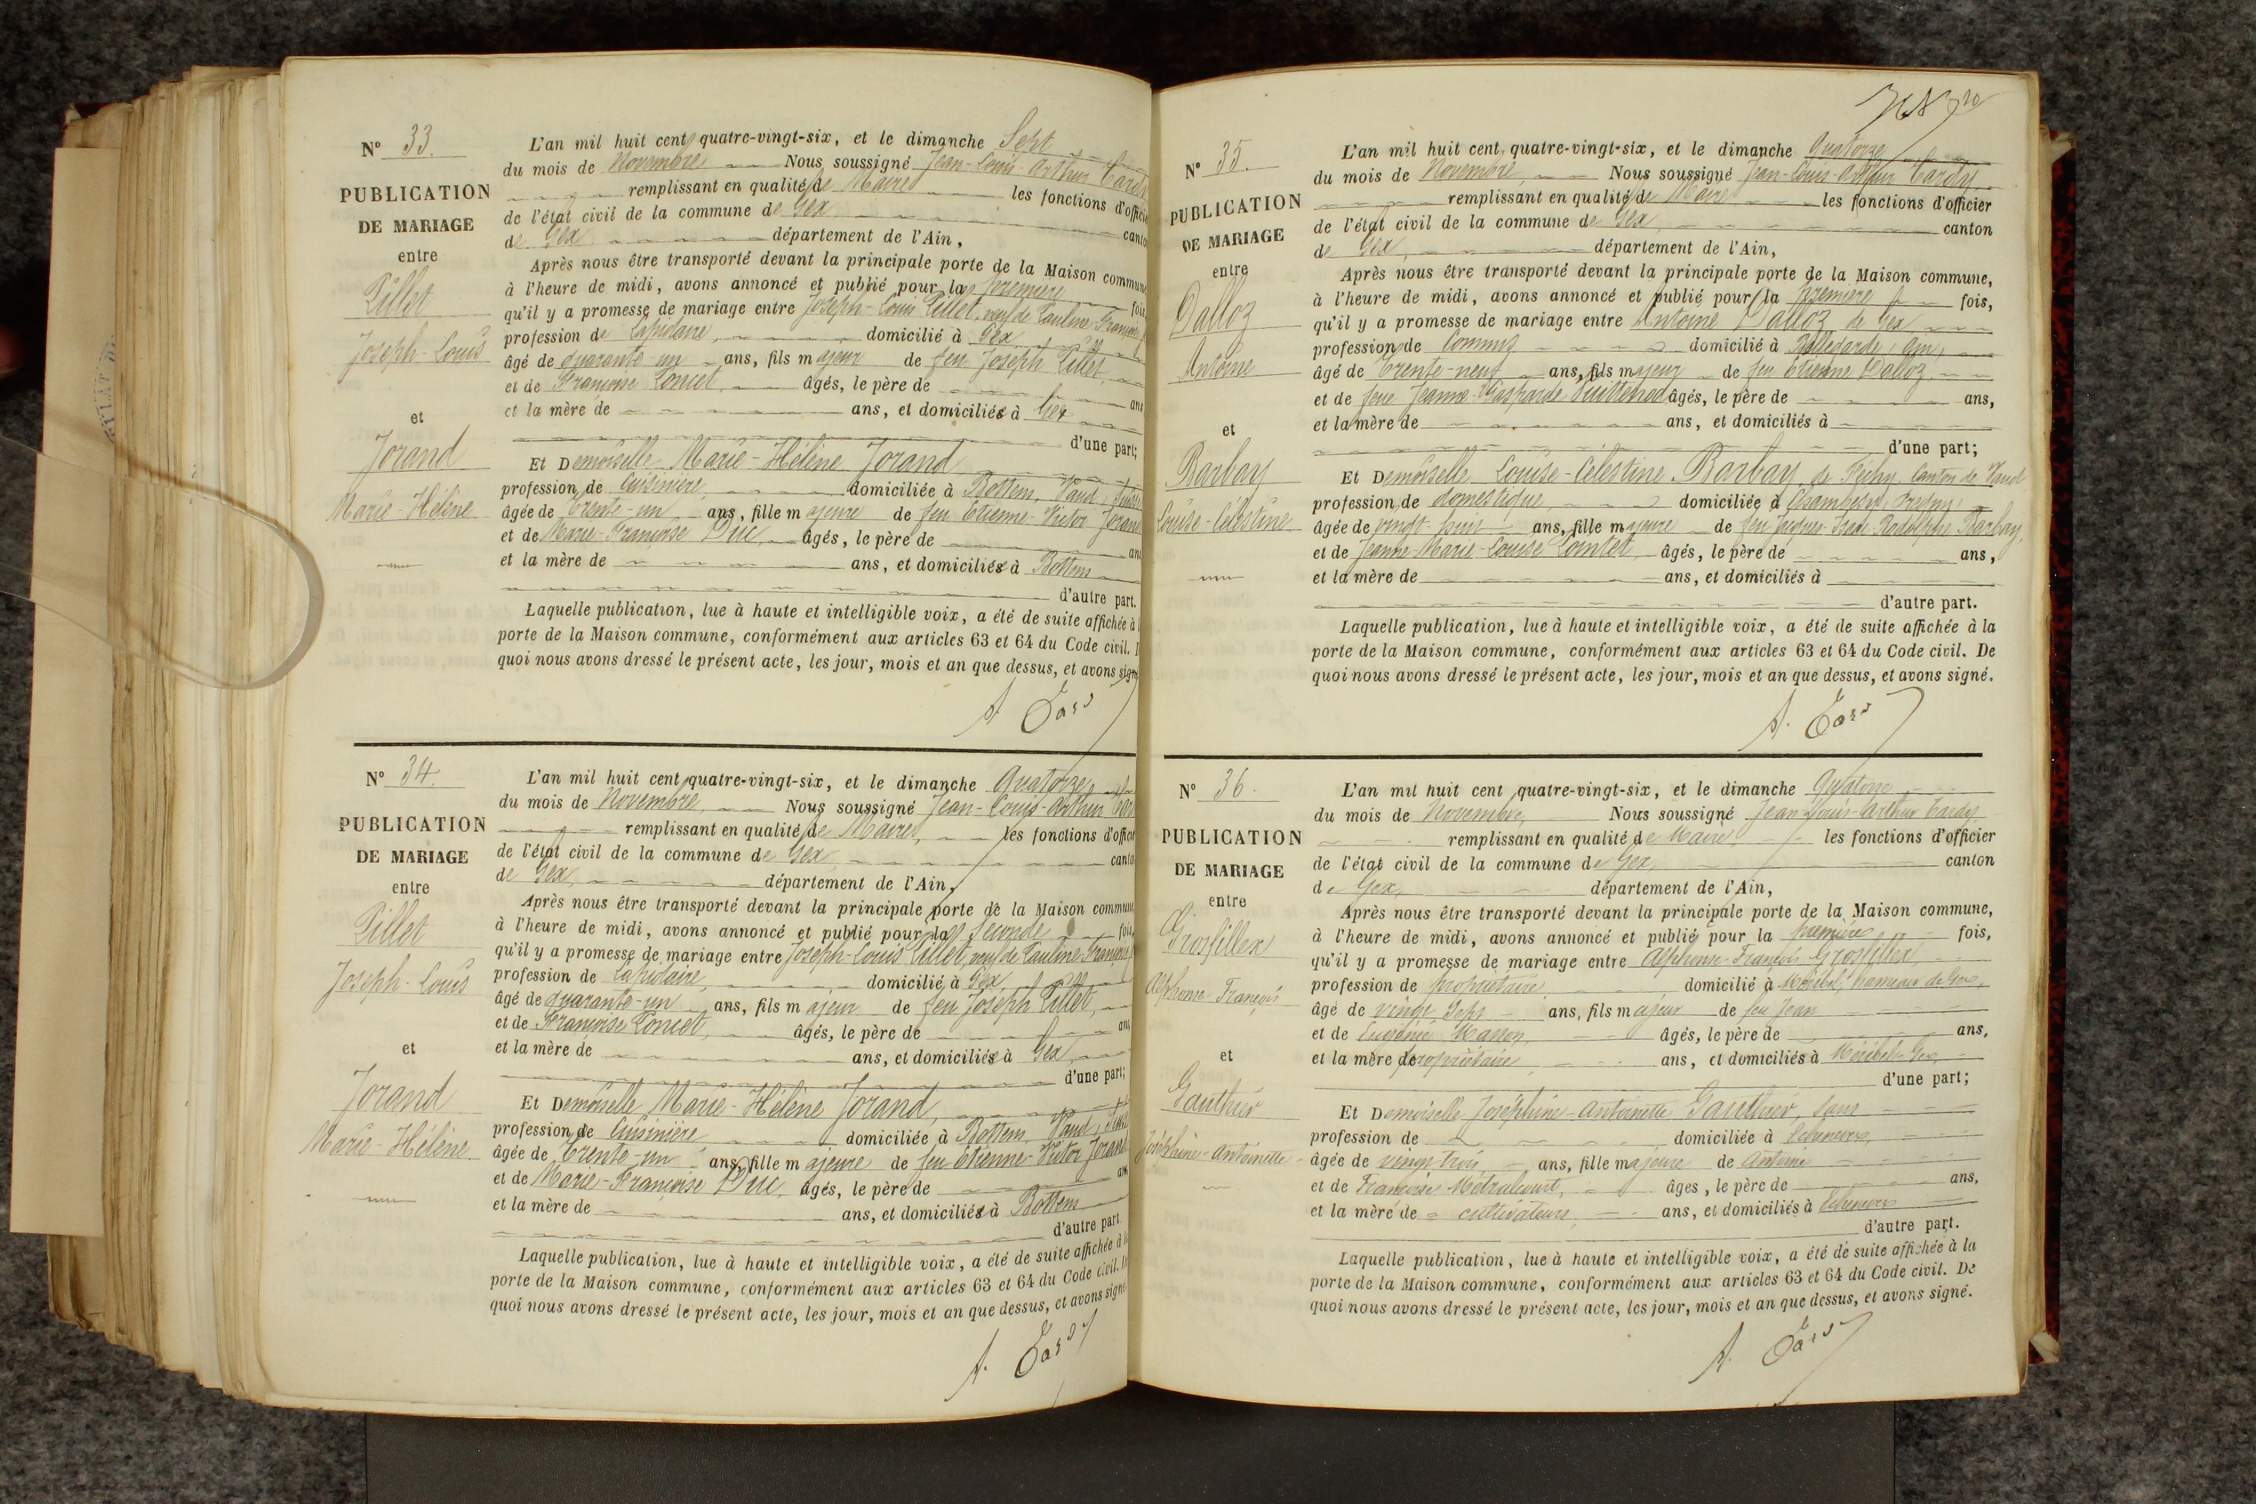 N° 33.
PUBLICATION
DE MARIAGE
entre
Pillet
Joseph-Louis
et
Jorand
Marie-Hélène
L'an mil huit cent quatre-vingt-six, et le dimanche Sept
du mois de Novembre Nous soussigné Jean-Louis-Arthur Tardy
remplissant en qualité de Maire les fonctions d'officier
de l'état civil de la commune de Gex canton
de Gex département de l'Ain,
Après nous être transporté devant la principale porte de la Maison commune
à l'heure de midi, avons annoncé et publié pour la première fois
qu'il y a promesse de mariage entre Joseph-Louis Pillet, veuf de Pauline-Françoise
profession de Lapidaire, domicilié à Gex
âgé de quarante-un ans, fils majeur de feu Joseph Pillet,
et de Françoise Poncet, âgés, le père de ans
et la mère de ans, et domiciliés à Gex
d'une part;
Et Demoiselle Marie-Hélène Jorand
profession de Cuisinière, domiciliée à Bottens, Vaud, Suisse
âgée de trente-un ans, fille majeure de feu Etienne-Victor Jorand
et de Marie-Françoise Duc, âgés, le père de ans
et la mère de ans, et domiciliés à Bottens
d'autre part.
Laquelle publication, lue à haute et intelligible voix, a été de suite affichée à
porte de la Maison commune, conformément aux articles 63 et 64 du Code civil.
quoi nous avons dressé le présent acte, les jour, mois et an que dessus, et avons signé
A. Tardy
N° 34.
PUBLICATION
DE MARIAGE
entre
Pillet
Joseph-Louis
et
Jorand
Marie-Hélène
L'an mil huit cent quatre-vingt-six, et le dimanche Quatorze
du mois de Novembre, Nous soussigné Jean-Louis-Arthur Tar
remplissant en qualité de Maire, les fonctions d'officier
de l'état civil de la commune de Gex canton
de Gex, département de l'Ain,
Après nous être transporté devant la principale porte de la Maison commune
à l'heure de midi, avons annoncé et publié pour la seconde fois,
qu'il y a promesse de mariage entre Joseph-Louis Pillet, veuf de Pauline-Françoise
profession de Lapidaire, domicilié à Gex,
âgé de quarante-un ans, fils majeur de feu Joseph Pillet,
et de Françoise Poncet, âgés, le père de ans
et la mère de ans, et domiciliés à Gex,
d'une part;
Et Demoiselle Marie-Hélène Jorand,
profession de Cuisinière domiciliée à Bottens, Vaud, Suisse
âgée de trente-un ans, fille majeure de feu Etienne-Victor Jorand
et de Marie-Françoise Duc, âgés, le père de ans
et la mère de ans, et domiciliés à Bottens
d'autre part
Laquelle publication, lue à haute et intelligible voix, a été de suite affichée à
porte de la Maison commune, conformément aux articles 63 et 64 du Code civil.
quoi nous avons dressé le présent acte, les jour, mois et an que dessus, et avons signé
A. Tardy
20
N° 35.
PUBLICATION
DE MARIAGE
entre
Dalloz
Antoine
et
Barbay
Louise-Célestine
L'an mil huit cent quatre-vingt-six, et le dimanche Quatorze
du mois de Novembre, Nous soussigné Jean-Louis-Arthur Tardy,
remplissant en qualité de Maire les fonctions d'officier
de l'état civil de la commune de Gex, canton
de Gex, département de l'Ain,
Après nous être transporté devant la principale porte de la Maison commune,
à l'heure de midi, avons annoncé et publié pour la première fois,
qu'il y a promesse de mariage entre Antoine Dalloz de Gex
profession de Commis domicilié à Bellegarde, Ain,
âgé de trente-neuf ans, fils majeur de feu Etienne Dalloz
et de feue Jeanne-Gasparde âgés, le père de ans,
et la mère de ans, et domiciliés à
d'une part;
Et Demoiselle Louise-Célestine Barbay, de Féchy, Canton de Vaud
profession de domestique, domiciliée à Chambésy, Pregny,
âgée de vingt-huit ans, fille majeure de feu Jacques-Isaac-Rodolphe Barbay,
et de Jeanne-Marie-Louise Pointet âgés, le père de ans,
et la mère de ans, et domiciliés à
d'autre part.
Laquelle publication, lue à haute et intelligible voix, a été de suite affichée à la
porte de la Maison commune, conformément aux articles 63 et 64 du Code civil. De
quoi nous avons dressé le présent acte, les jour, mois et an que dessus, et avons signé.
A. Tardy
N° 36.
PUBLICATION
DE MARIAGE
entre
Grosfillex
Alphonse-François
et
Gauthier
Joséphine-Antoinette
L'an mil huit cent quatre-vingt-six, et le dimanche Quatorze
du mois de Novembre, Nous soussigné Jean-Louis-Arthur Tardy
remplissant en qualité de Maire les fonctions d'officier
de l'état civil de la commune de Gex, canton
de Gex, département de l'Ain,
Après nous être transporté devant la principale porte de la Maison commune,
à l'heure de midi, avons annoncé et publié pour la première fois,
qu'il y a promesse de mariage entre Alphonse-François Grosfillex
profession de propriétaire domicilié à Méribel, hameau de Gex,
âgé de vingt-sept ans, fils majeur de feu Jean
et de Eugénie Masson, âgés, le père de ans,
et la mère de propriétaire, ans, et domiciliés à Méribel-Gex
d'une part;
Et Demoiselle Joséphine-Antoinette Gauthier, sans
profession de domiciliée à Echenevex,
âgée de vingt-trois, ans, fille majeure de Antoine
et de Françoise âgés, le père de ans,
et la mère de cultivateurs, ans, et domiciliés à Echenevex
d'autre part.
Laquelle publication, lue à haute et intelligible voix, a été de suite affichée à la
porte de la Maison commune, conformément aux articles 63 et 64 du Code civil. De
quoi nous avons dressé le présent acte, les jour, mois et an que dessus, et avons signé.
A. Tardy